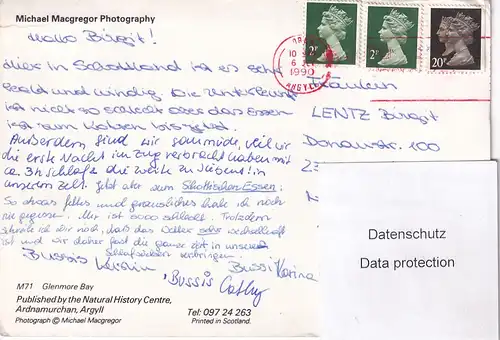 Michael Macgregor Photography
Hallo Birgit!
Hier in Schottland ist es sehr
kalt und windig. Die Unterkunft
ist nicht so schlecht aber das Essen
ist zum Kotzen bis jetzt.
Außerdem sind wir saumüde, weil wir
die erste Nacht im Zug verbracht haben mit
ca. 3h Schlaf & die zweite zu in
unserem Zelt. Jetzt aber zum Shottischen Essen:
So etwas fettes und grausliches habe ich noch
nie gegessen. Mir ist sooo schlecht. Trotzdem
schreibe ich dir noch, daß das Wetter sehr wechselhaft
ist und wir daher fast die ganze Zeit in unseren
Schlafsäcken verbringen.
Bussis
Bussi Karina
Bussis Cathy
M71 Glenmore Bay
Published by the Natural History Centre,
Ardnamurchan, Argyll
Photograph © Michael Macgregor
Tel: 097 24 263
Printed in Scotland.
2P
2P
20P
6
1990
ARGYLL
Fräulein
LENTZ Birgit
Donaustr. 100
Datenschutz
Data protection